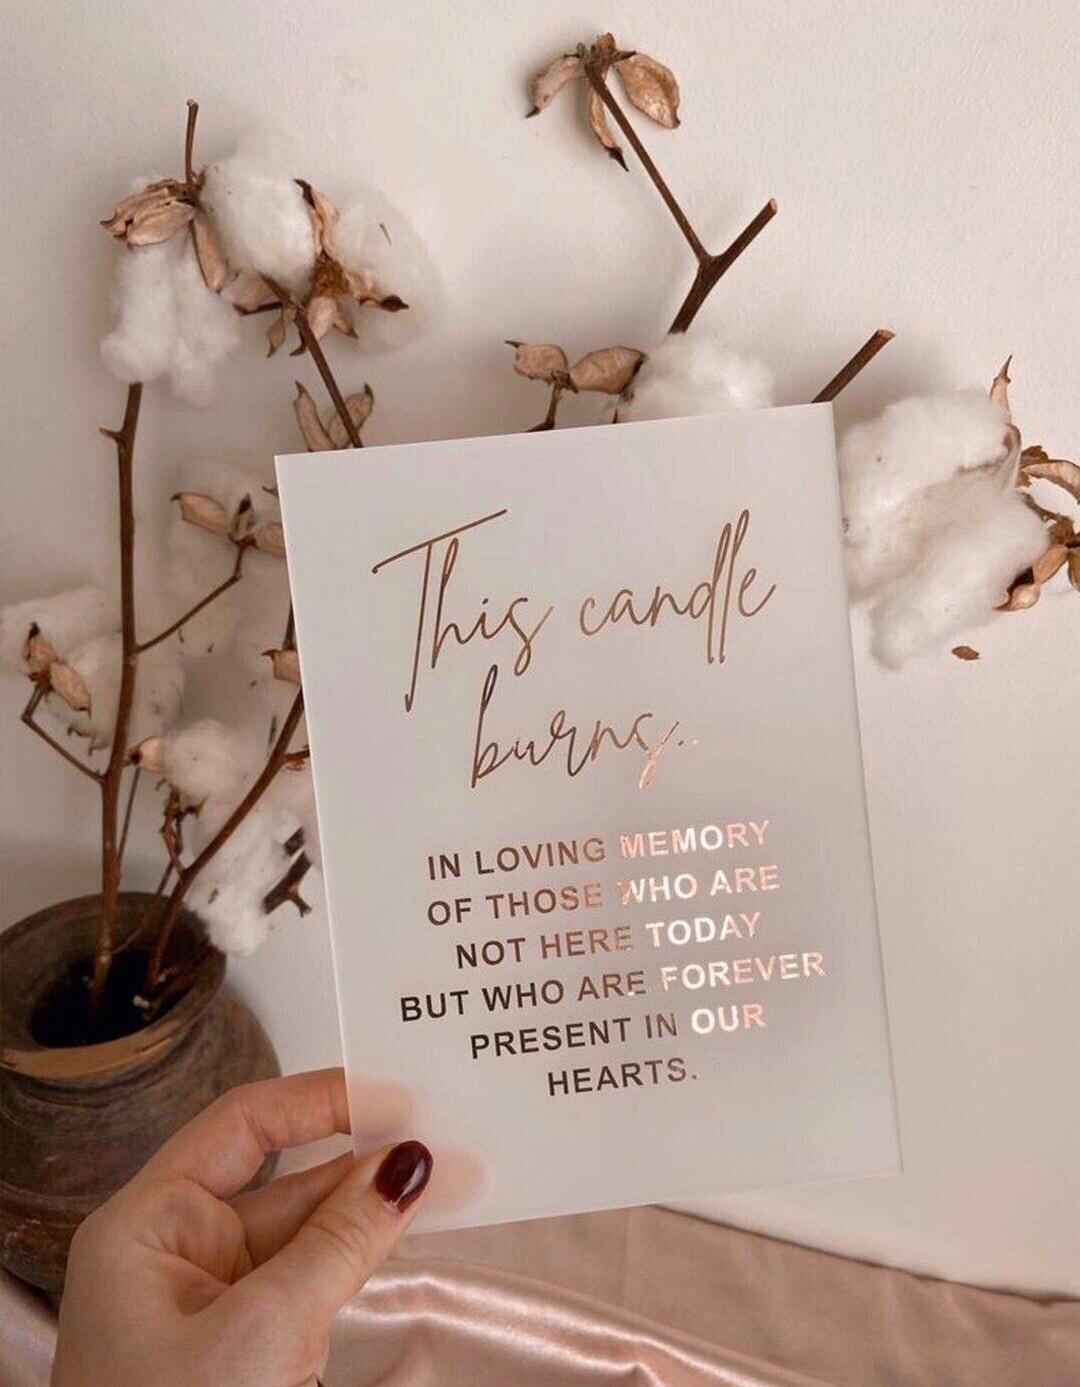 This candle
burns..
IN LOVING MEMORY
OF THOSE WHO ARE
NOT HERE TODAY
BUT WHO ARE FOREVER
PRESENT IN OUR
HEARTS.